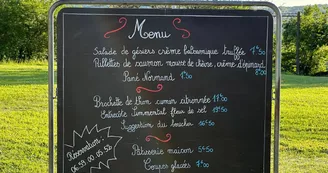 Menu
Salade de gésiers crème balsamique truffée 7€50
Rillettes de saumon mousse de chèvre, crème d'épinard
8€00
Pavé Normand
Brochette de thon cumin citronnée 17€50
Entrecôte Simmental fleur de sel 19€50
Suggestion du boucher 16€50
Pâtisserie maison 5€50
Coupes glacées 7€00
Réservations
06 55 00 05 52